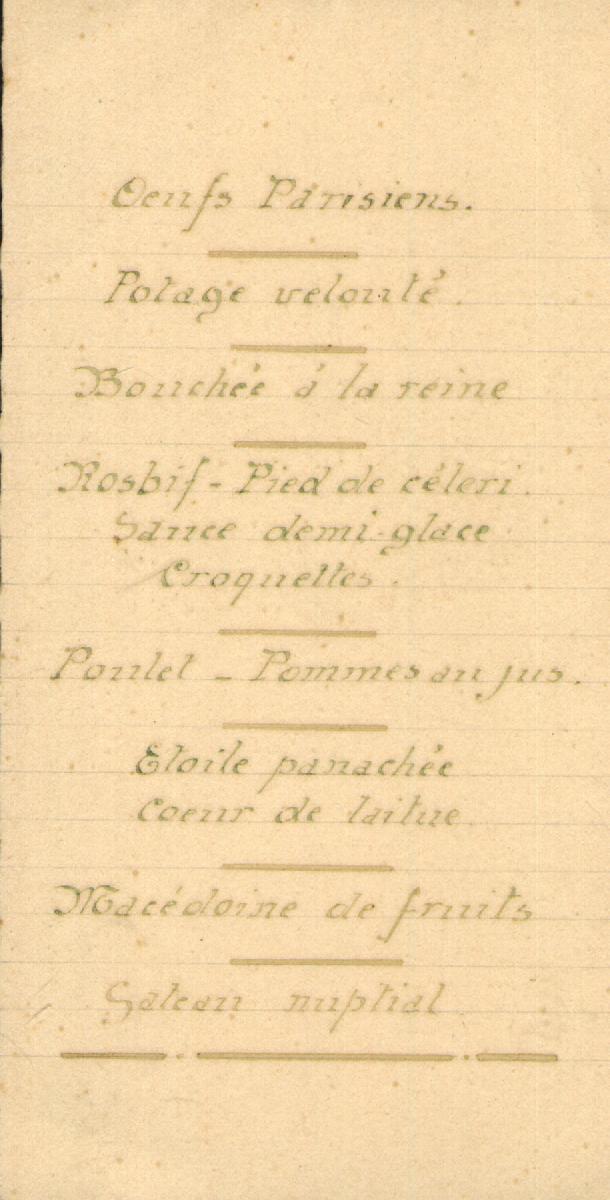 Oeufs Parisiens.
Potage velouté.
Bouchée à la reine
Rosbif - Pied de céleri.
Sauce demi-glace
Croquettes.
Poulet - Pommes au jus.
Etoile panachée
Coeur de laitue.
Macédoine de fruits
Gateau nuptial